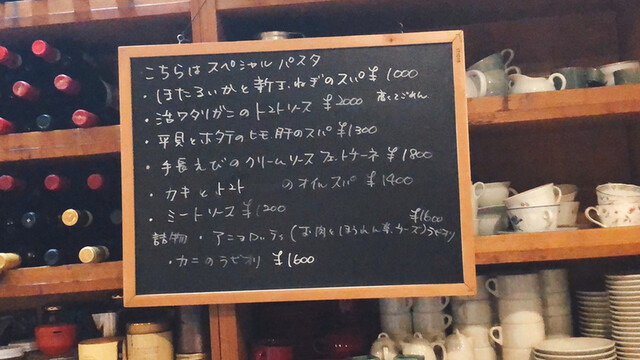 こちらは スペシャル パスタ
・ほたるいかと新玉ねぎのスパ ¥1000
・渡りワタリガニのトマトソース ¥2000 高くてごめん
・平貝とホタテのヒモ、肝のスパ ¥1300
・手長えびのクリームソース フェットチーネ ¥1800
・カキとトマト のオイルスパ ¥1400
・ミートソース ¥1200
¥1600
詰物 ・アニョロッティ(お肉とほうれん草、チーズ)ラビオリ
・カニのラビオリ ¥1600